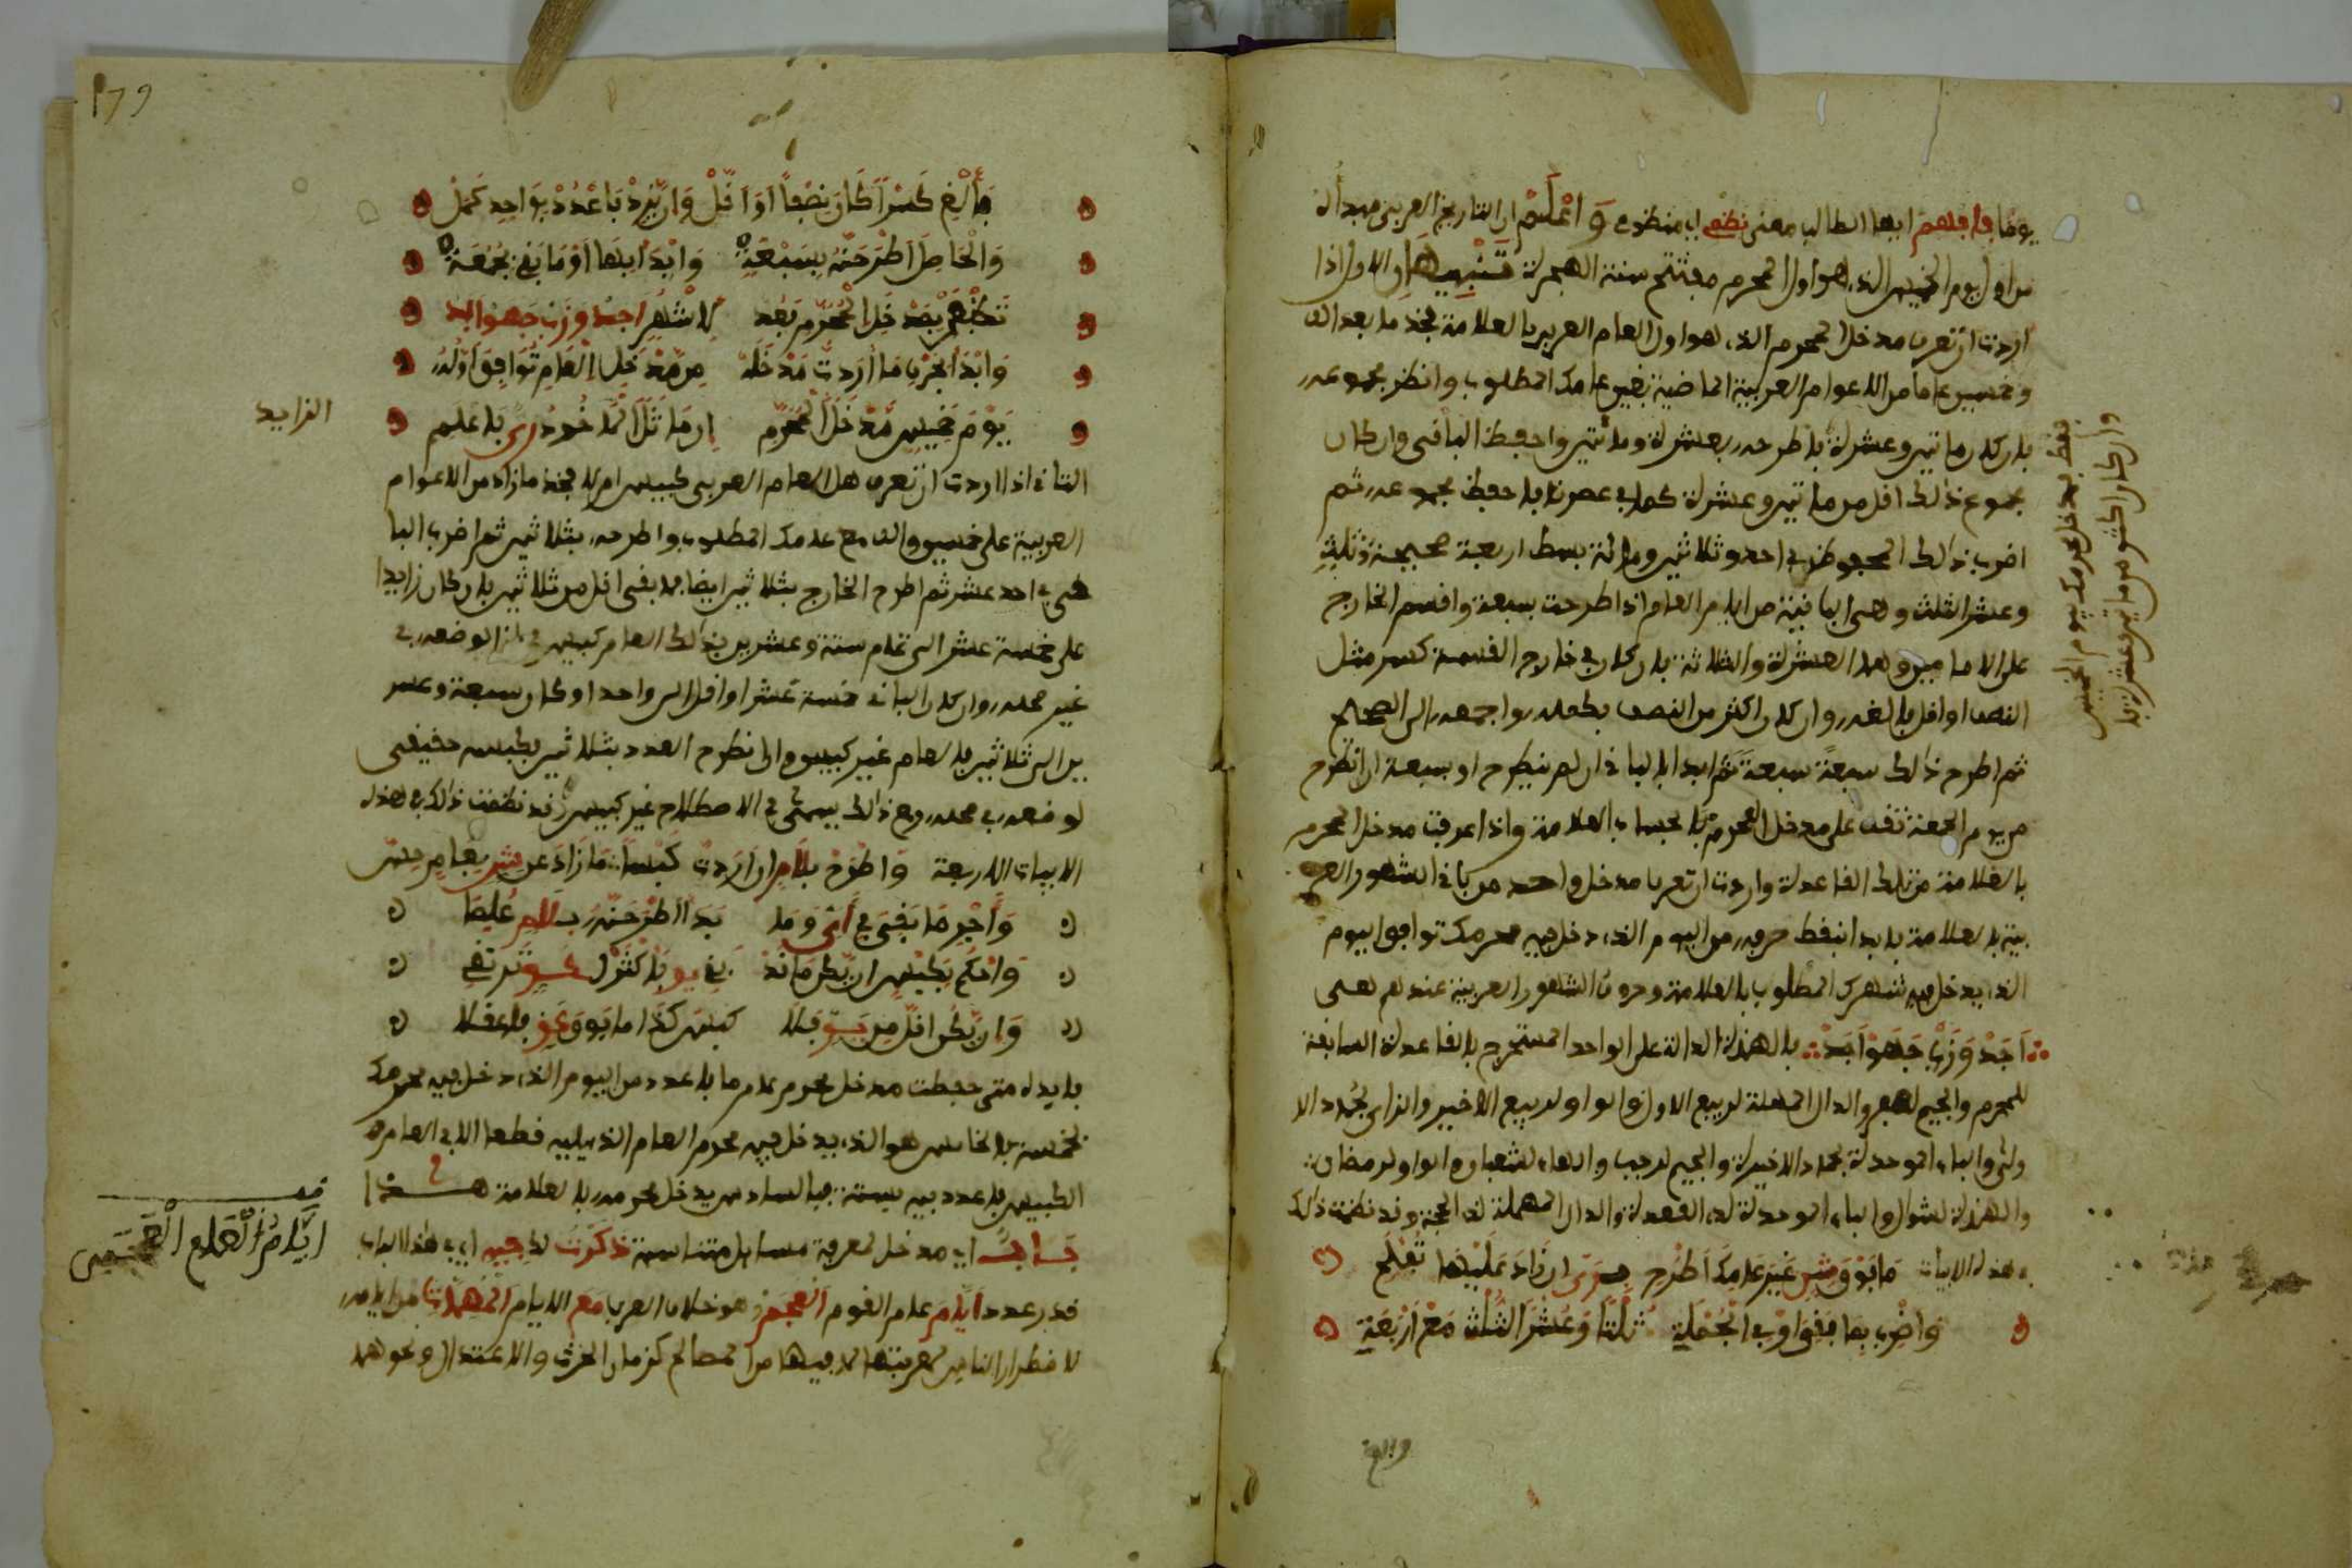 يوما فافهم ايها الطالب معنى نظمى اي منظومى وَاعْلَمْ ان التاريخ العربي مبدأه
من اول يوم الخميس الذي هو اول المحرم مفتتح سنة الهجرة تنبيهان الاول اذا
اردت ان تعرف مدخل المحرم الذي هو اول العام العربي بالعلامة فخذ ما بعد الف
وخمسين عاما من الاعوام العربية الماضية بغير عامك المطلوب وانظر مجموعه
فان كان مائتين وعشرة فاطرحه بعشرة ومائتين واحفظ الباقى وان كان
مجموع ذلك اقل من مائتين وعشرة كما في عصرنا فاحفظ مجموعه ثم
اضرب ذلك المحفوظ في احد وثلاثين ومائة بسط اربعة صحيحة وثلث
وعشر الثلث وهى الباقية من ايام العام اذا طرحت بسبعة واقسم الخارج
على الامامين وهما العشرة والثلاثة فان كان في خارج القسمة كسر مثل
النصف او اقل فالغه وان كان اكثر من النصف فكمله واجمعه الى الصحيح
ثم اطرح ذلك سبعة سبعة ثم ابدا بالباقى ان لم ينطرح او بسبعة ان انطرح
من يوم الجمعة تقف على مدخل المحرم بالحساب العلامة واذا عرفت مدخل المحرم
بالعلامة من تلك القاعدة واردت ان تعرف مدخل واحد من باقى الشهور العر
بية بالعلامة فابدا بنقط حرفه من اليوم الذي دخل فيه محرمك توافق اليوم
الذي يدخل فيه شهرك المطلوب بالعلامة وحروف الشهور العربية عندهم هى
اَجَدْ وَزَبْ جَهَوْ اَبَدْ فالهمزة الدالة على الواحد المستخرج بالقاعدة السابقة
للمحرم والجيم لصفر والدال المهملة لربيع الاول والواو لربيع الاخير والزاى لجماد الا
ولى والباء الموحدة لجماد الاخيرة والجيم لرجب والهاء لشعبان والواو لرمضان
والهمزة لشوال والباء الموحدة لذي القعدة والدال المهملة لذي الحجة وقد نظمت ذلك
في هذه الابيات مَا فَوْقَ شِنٍ غَيْرَ عَامِكَ اَطْرَحِ ان زَادَ عَلَيْهَا تُفْلِحِ
وَاضْرِبْ بِمَا بَقِىَ وْفِى الْجُمْلَةِ ثُلْثًا وَعُشْرَ الثُّلْثِ مَعْ اَرْبَعَةِ
وان كان اكثر من مائتين وعشرة فا
بمدخل محرمك يوم الخميس
والغ
179
وَأَلْغِ كَسْراً كَانَ نِصْفاً اَوْ اَقَلْ وَاِنْ يَزِدْ فَاعْدُدْ بِوَاحِدٍ كَمَلْ
وَالْحَاصِلَ اَطْرَحَنَّهُ بِسَبْعَةِ وَابْدَا بِهَا اَوْ مَا بَقِى بِجُمْعَةِ
تَظْفَرْ بِمَدْخَلِ الْمُحَرَّمِ بَعْد لِاشْهُرٍ اجد وزب جهو ابد
وَابْدَا بِحَرْفِ مَا اَرَدتَ مَدْخَلَهْ مِن مَّدْخَلِ الْعَامِ تُوَافِقْ اَوَّلَهْ
يَوْمَ خَمِيسٍ مَدْخَلُ الْمُحَرَّمِ اِن مَا تَلَا الْمَاخُوذُ رى فَاعْلَمِ
الزايد
الثانى اذا اردت ان تعرف هل العام العربى كبيس ام لا فخذ ما زاد من الاعوام
العربية على خمسين والف مع عامك المطلوب واطرحه بثلاثين ثم اضرب البا
قى في احد عشر ثم اطرح الخارج بثلاثين ايضا فما بقى اقل من ثلاثين فان كان زايدا
على خمسة عشر الى تمام ستة وعشرين فذلك العام كبيس في الوضعه في
غير محله وان كان الباقى خمسة عشر او اقل الى واحد او كان سبعة وعشر
ين الى ثلاثين فالعام غير كبيس والى نطرح العدد بثلاثين فكبيس حقيقى
لوضعه في محله ومع ذلك يسمى في الاصطلاح غير كبيس وقد نظمت ذلك في هذه
الابيات الاربعة وَاطْرَحْ بِلَامٍ اِن اَرَدتَ كَبْسًا مَا زَادَ عَن شنٍ بِعَامٍ
وَاجْرِ مَا بَقِىَ فِى أَىٍ وَمَا بَدَا اطْرَحَنَّهُ بِلَامٍ عُلِمَا
وَاحْكُم بِكَبْسٍ اِن يَّكُن مَا فَاكْثَرْ
وَان يَّكُن اقَلَّ مِن يَوٍ فَلَا كَبْسَ كَذَا مَا فَوْقَ فَاعْقِلَا
فايدة متى حفظت مدخل محرم عام ما فاعدد من اليوم الذي دخل فيه محرمك
بخمسة فالخامس هو الذي يدخل فيه محرم العام الذي يليه قطعا الا في العام
الكبيس فاعدد فيه بستة فبالسادس يدخل محرمه بالعلامة هذا
بَابٌ اي مدخل لمعرفة مسايل متناسبة ذكرت لا فيه اي في هذا الباب
قدر عدد ايّام عام القوم العجم وهو خلاف العرب مع الايام المهملات من ايامه
لاضطرار الناس لمعرفتها لما فيها من المصالح كزمان الحرث والاعتدال ونحوهما
ايّامُ العام العجمى